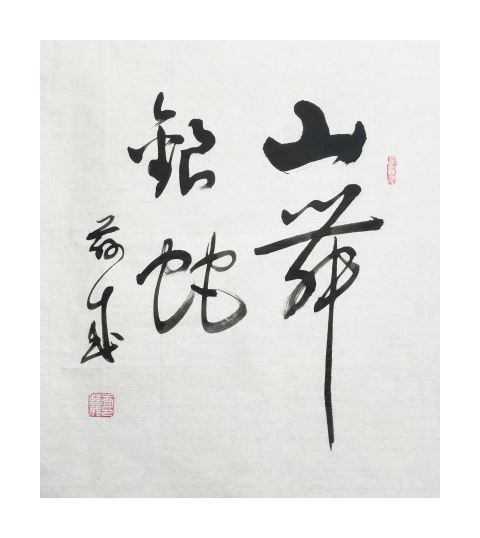 山舞
銀蛇